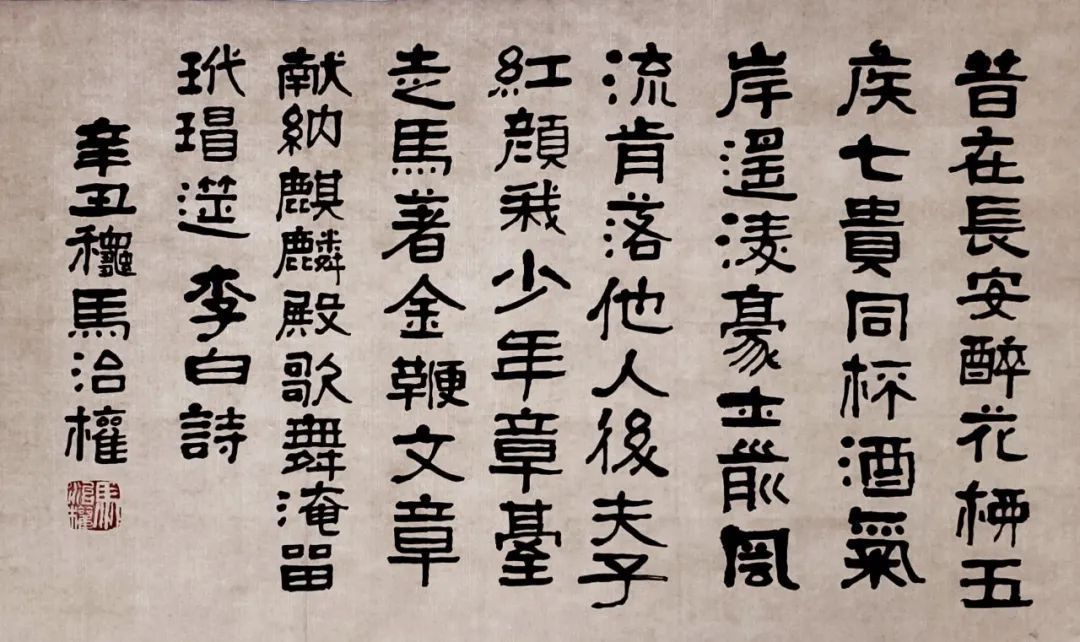 昔在長安醉花柳五
矦七貴同杯酒氣
岸遥淩豪士前風
流肯落他人後夫子
紅顔我少年章臺
走馬著金鞭文章
献納麒麟殿歌舞淹留
玳瑁筵 李白詩
辛丑龝馬治權
馬治權